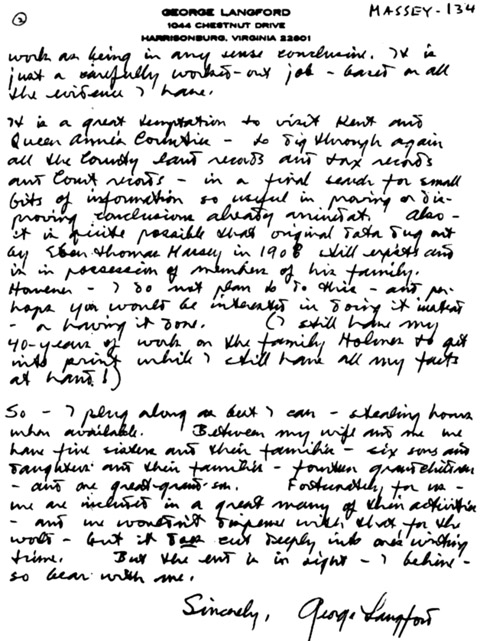 ②
GEORGE LANGFORD
MASSEY-134
1044 CHESTNUT DRIVE
HARRISONBURG, VIRGINIA 22801
work as being in any sense conclusive. It is
just a carefully worked-out job - based on all
the evidence I have.
It is a great temptation to visit Kent and
Queen Anne's Counties - to dig through again
all the County land records and tax records
and Court records - in a final search for small
bits of information so useful in proving or dis-
proving conclusions already arrived at. Also -
it is quite possible that original data dug out
by Eben Thomas Massey in 1908 still exists and
is in possession of members of his family.
However - I do not plan to do this - and per-
haps you would be interested in doing it instead
- or having it done. (I still have my
40-years of work on the family Holmes to get
into print while I still have all my facts
at hand!)
So - I plug along as best I can - stealing hours
when available. Between my wife and me we
have five sisters and their families - six sons and
daughters and their families - fourteen grandchildren
- and one great-grandson. Fortunately for us -
we are included in a great many of their activities
- and we wouldn't dispense with that for the
world - but it does cut deeply into one's writing
time. But the end is in sight - I believe -
so bear with me.
Sincerely, George Langford